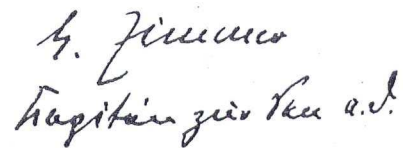 G. Zimmer
Kapitän zur See a.D.